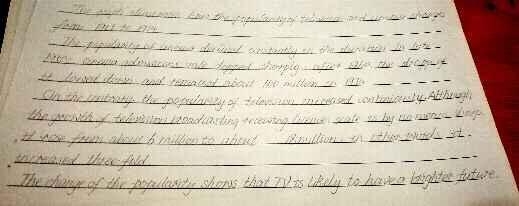 The graph shows how the popularity of television and cinema changes
from 1957 to 1974.
The popularity of cinema declined constantly in the duration. In late
1950s cinema admissions rate dropped sharply. After 1960, the
it slowed down and remained about 100 million in 1974.
On the contrary, the popularity of television increased continuously. Although
the growth of television broadcasting receiving licences scale is by no means sharp,
it rose from about 6 million to about 18 million. In other words, it
increased three fold.
The change of the popularity shows that TV is likely to have a brighter future.